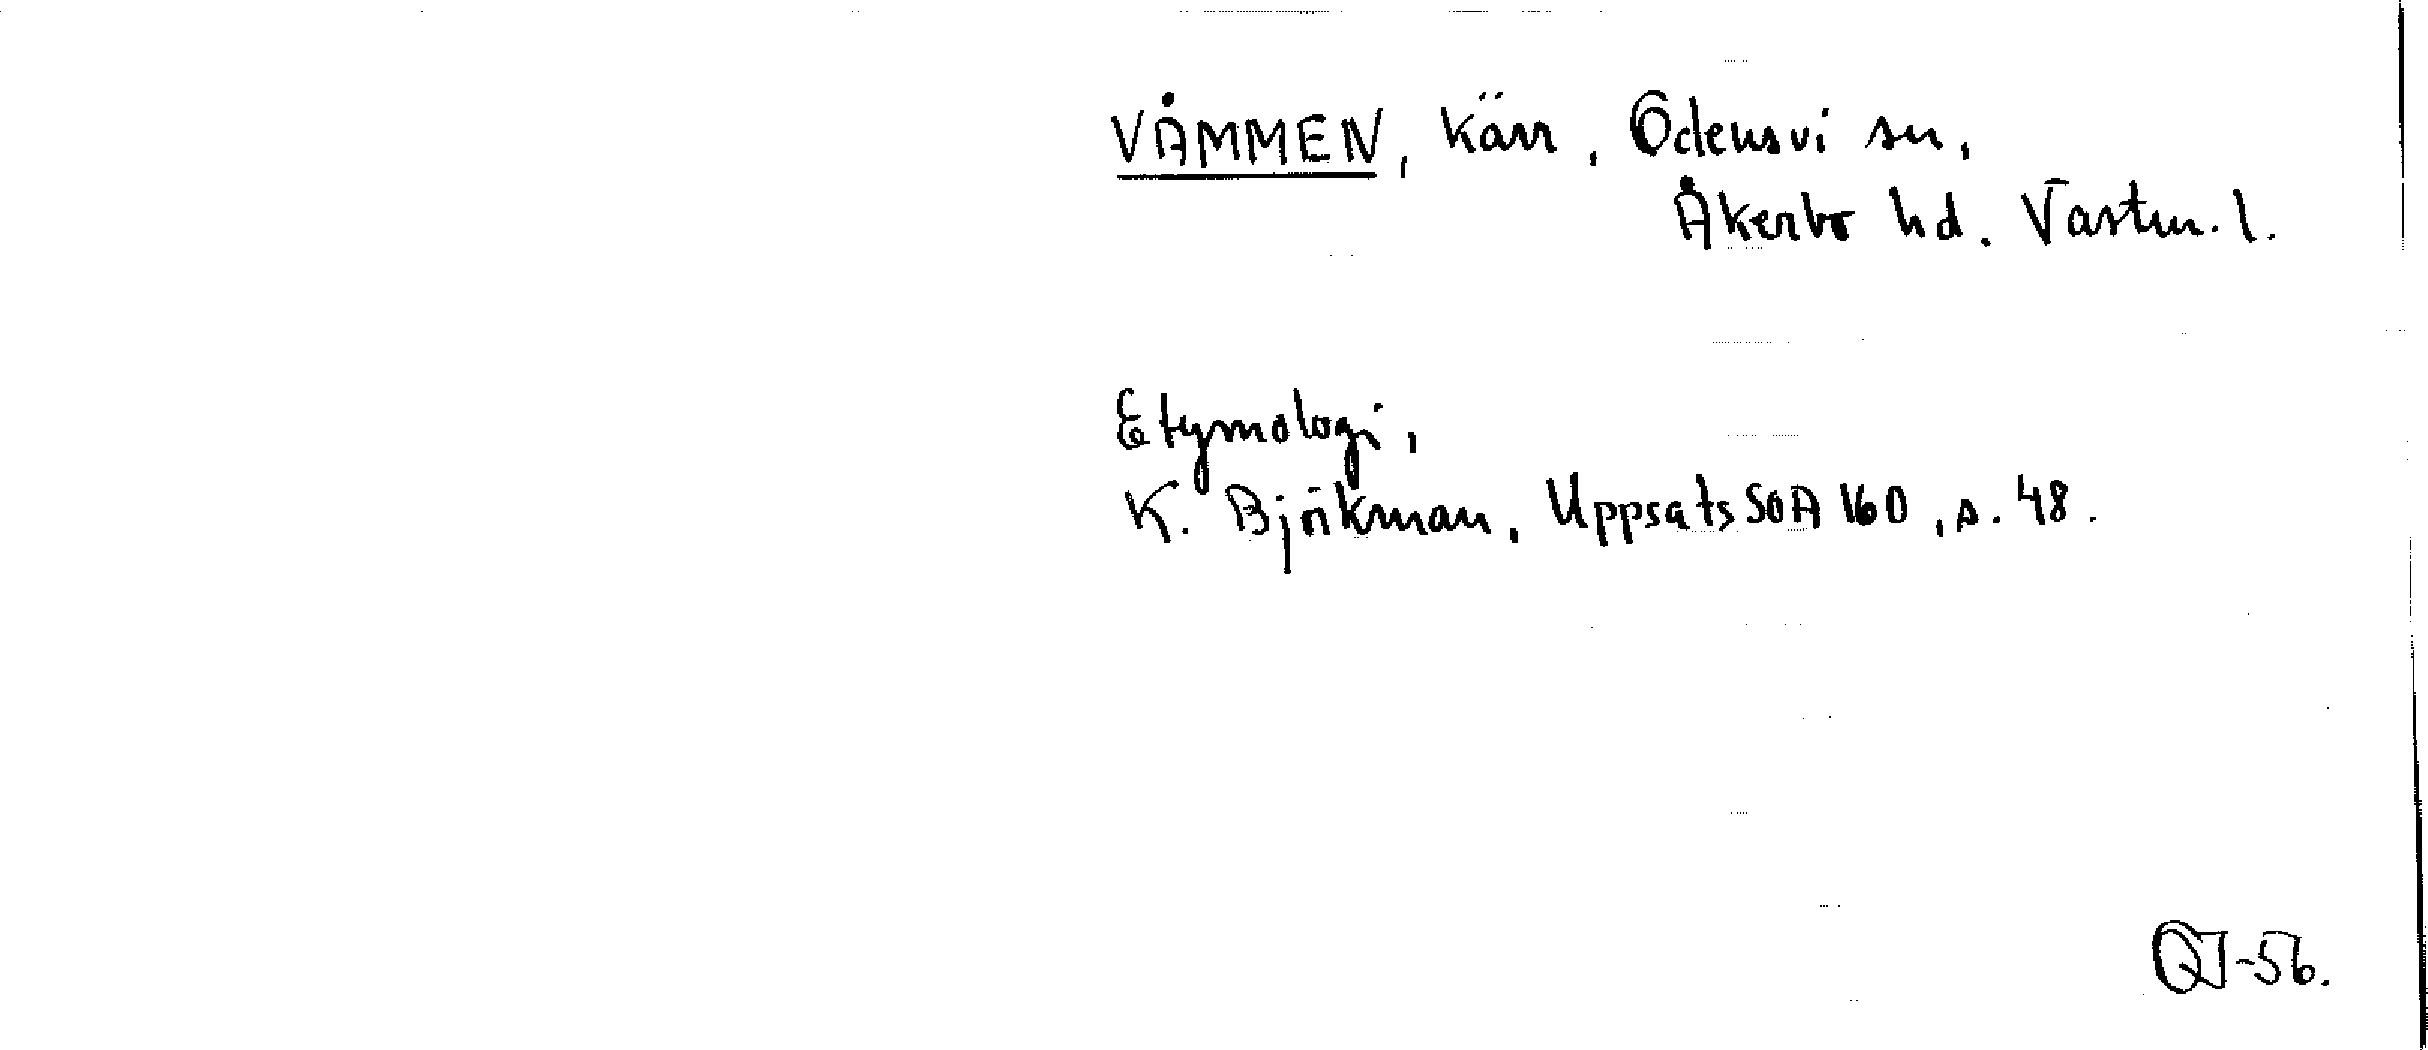 VÅMMEN, kärr, Odensvi sn,
Åkerbo hd. Västm. l.
Etymologi,
K. Björkman, Uppsats SOA 160, s. 48.
-56.